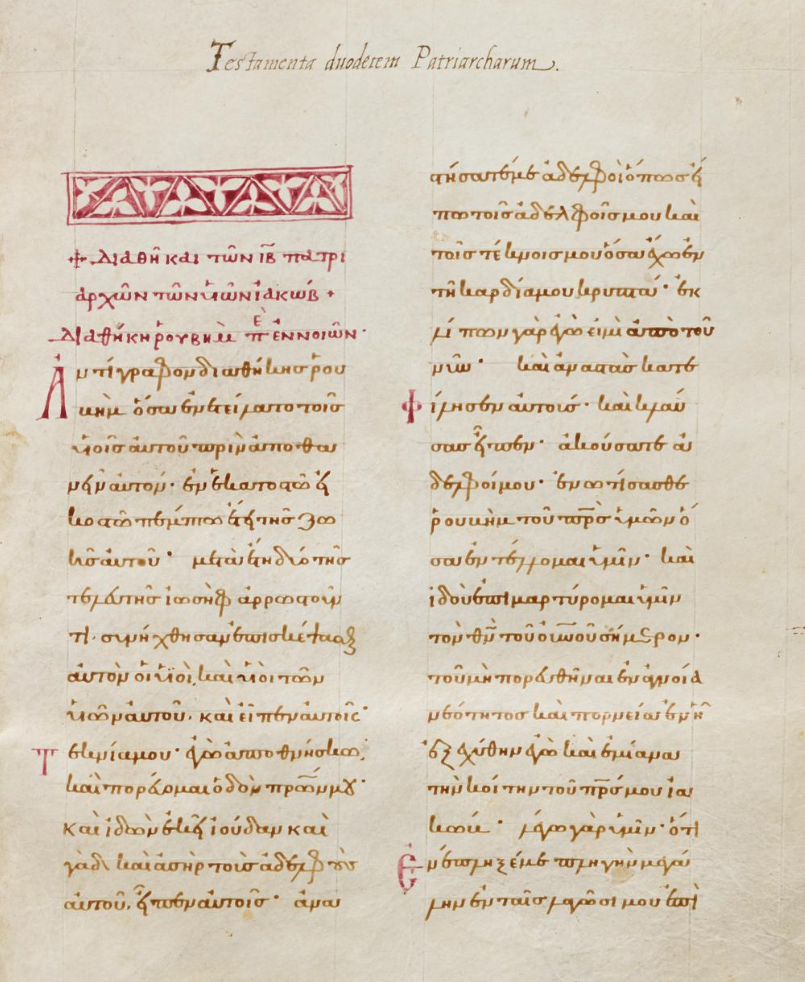 Testamenta duodecem Patriarcharum.
Διαθῆκαι τῶν ιβ̅ πατρι
αρχῶν τῶν υἱῶν ἰακώβ +
Διαθήκη ῥουβὴμ περὶ ἐννοιῶν·
Ἀντίγραφον διαθήκης ῥου
βὴμ ὅσα ἐνετείλατο τοῖς
υἱοῖς αὐτοῦ πρὶν ἀποθα
νεῖν αὐτόν· ἐν ἑκατοστῶ εἰ
κοστῶ πέμπτω ἔτει τῆς ζω
ῆς αὐτοῦ· μετὰ ἔτη δύο τῆς
τελευτῆς ἰωσὴφ ἀρρωστοῦν
τι· συνήχθησαν ἐπισκέψασθαι
αὐτὸν οἱ υἱοὶ, καὶ υἱοὶ τῶν
υἱῶν αὐτοῦ· καὶ εἶπεν αὐτοῖς·
Τεκνία μου· ἐγὼ ἀποθνήσκω,
καὶ πορεύομαι ὁδὸν πρ̅ων μου·
καὶ ἰδὼν ἐκεῖ ἰούδαν καὶ
γὰδ καὶ ἀσὴρ τοὺς ἀδελφοὺς
αὐτοῦ, εἶπεν αὐτοῖς· ἀνα
στήσατέ με ἀδελφοὶ ὅπως εἴ
πω τοῖς ἀδελφοῖς μου καὶ
τοῖς τέκνοις μου ὅσα ἔχω ἐν
τῆ καρδία μου κρυπτά· ἐκ
λείπων γὰρ ἐγώ εἰμι ἀπὸ τοῦ
νῦν· καὶ ἀναστὰς κατε
φίλησεν αὐτούς· καὶ κλαύ
σας εἶπεν· ἀκούσατε ἀ
δελφοί μου· ἐνωτίσασθε
ῥουβὴμ τοῦ πρ̅ς ὑμῶν ὅ
σα ἐντέλλομαι ὑμῖν· καὶ
ἰδοὺ ἐπιμαρτύρομαι ὑμῖν
τὸν θ̅ν τοῦ οὐ̅νοῦ σήμερον·
τοῦ μὴ πορευθῆναι ἐν ἀγνοία
νεότητος καὶ πορνείας ἐν ἧ
ἐξεχύθην ἐγὼ καὶ ἐμίανα
τὴν κοίτην τοῦ πρ̅ς μου ἰα
κώβ· λέγω γὰρ ὑμῖν· ὅτι
ἐνέπληξέ με πληγὴν μεγά
λην ἐν ταῖς λαγῶσί μου ἐπὶ